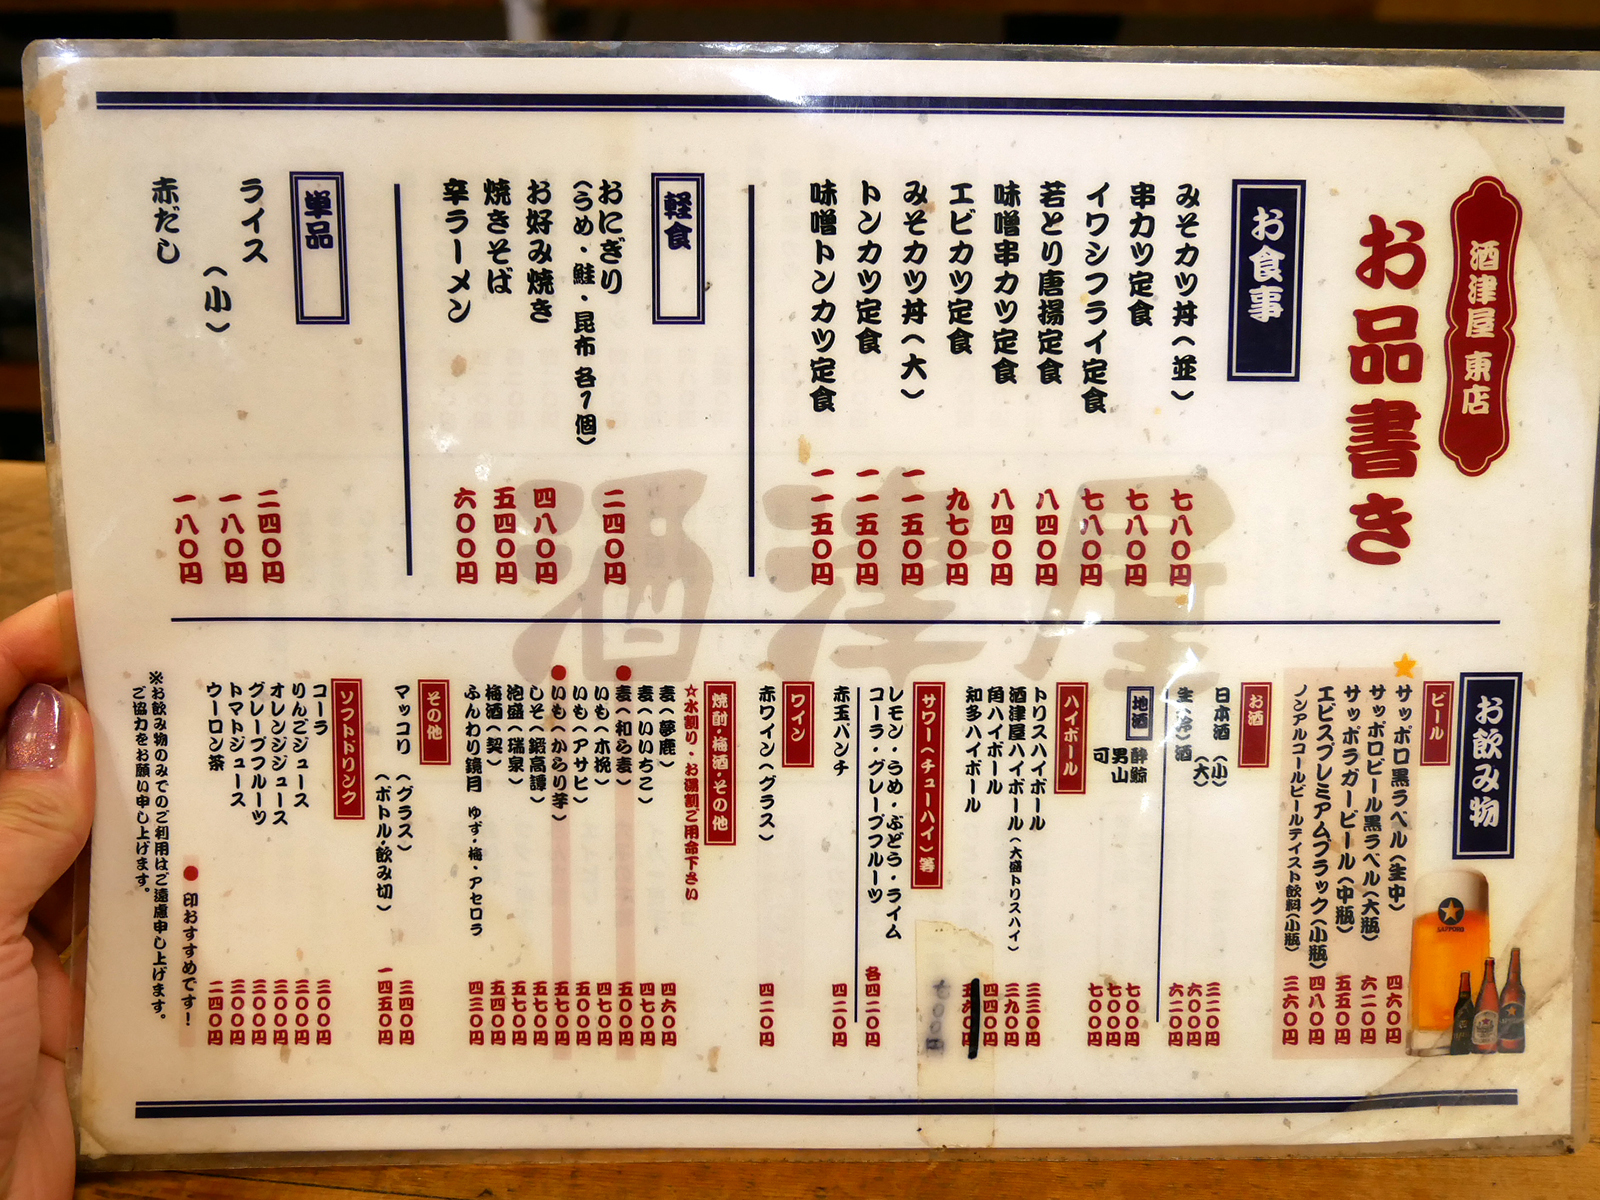 酒津屋 東店
お品書き
お食事
みそカツ丼(並) 七八〇円
串カツ定食 七八〇円
イワシフライ定食 七八〇円
若とり唐揚定食 八四〇円
味噌串カツ定食 八四〇円
エビカツ定食 九七〇円
みそカツ丼(大) 一一五〇円
トンカツ定食 一一五〇円
味噌トンカツ定食 一一五〇円
軽食
おにぎり
(うめ・鮭・昆布 各1個) 二四〇円
お好み焼き 四八〇円
焼きそば 五四〇円
辛ラーメン 六〇〇円
単品
ライス 二四〇円
(小) 一八〇円
赤だし 一八〇円
酒津屋
お飲み物
ビール
サッポロ黒ラベル(生中) 四六〇円
サッポロビール黒ラベル(大瓶) 六二〇円
サッポラガービール(中瓶) 五五〇円
エビスプレミアムブラック(小瓶) 四八〇円
ノンアルコールビールテイスト飲料(小瓶) 三六〇円
SAPPORO
お酒
日本酒 (小) 三二〇円
(大) 六〇〇円
生(冷)酒 六二〇円
地酒
酔鯨 七〇〇円
男山 七〇〇円
可 七〇〇円
ハイボール
トリスハイボール 三三〇円
酒津屋ハイボール(大盛トリスハイ) 三九〇円
角ハイボール 四四〇円
知多ハイボール
七〇〇円
サワー(チューハイ)等
レモン・うめ・ぶどう・ライム
コーラ・グレープフルーツ 各四二〇円
赤玉パンチ 四二〇円
ワイン
赤ワイン(グラス) 四二〇円
焼酎・梅酒・その他
☆水割り・お湯割ご用命下さい
麦(夢鹿) 四六〇円
麦(いいちこ) 四七〇円
●麦(和ら麦) 五〇〇円
いも(木挽) 四七〇円
いも(アサヒ) 五〇〇円
●いも(からり芋) 五七〇円
しそ(鍛高譚) 五七〇円
泡盛(瑞泉) 五七〇円
梅酒(契) 五四〇円
ふんわり鏡月 ゆず・梅・アセロラ 四三〇円
その他
マッコリ (グラス) 三四〇円
(ボトル・飲み切) 一四五〇円
ソフトドリンク
コーラ 三〇〇円
りんごジュース 三〇〇円
オレンジジュース 三〇〇円
グレープフルーツ 三〇〇円
トマトジュース 三〇〇円
ウーロン茶 二四〇円
●印おすすめです!
※お飲み物のみでのご利用はご遠慮申し上げます。
ご協力をお願い申し上げます。